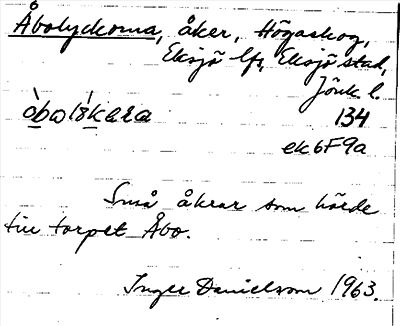 Åbolyckorna, åker, Högaskog,
Eksjö lfs, Eksjö stad,
Jönk l.
134
ek6F9a
Små åkrar som hörde
till torpet Åbo.
Inger Danielsson 1963.